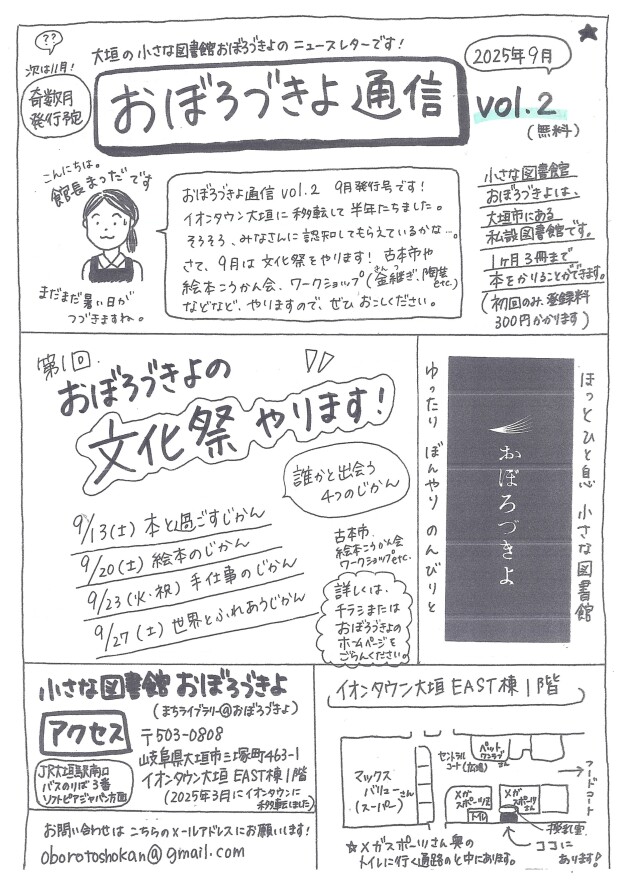 ??
大垣の小さな図書館おぼろづきよのニュースレターです!
2025年9月
次は11月!
奇数月
発行予定
おぼろづきよ通信
vol.2
(無料)
こんにちは。
館長まつだです
まだまだ暑い日が
つづきますね。
おぼろづきよ通信 vol.2 9月発行号です!
イオンタウン大垣に移転して半年たちました。
そろそろ、みなさんに認知してもらえているかな…。
さて、9月は文化祭をやります! 古本市や
絵本こうかん会、ワークショップ(金継ぎ、陶芸etc.)
きんつ
などなど、やりますので、ぜひ おこしください。
小さな図書館
おぼろづきよは、
大垣市にある
私設図書館です。
1ヶ月3冊まで
本をかりることができます。
(初回のみ、登録料
300円かかります)
第1回
おぼろづきよの
文化祭 やります!
誰かと出会う
4つのじかん
9/13(土) 本と過ごすじかん
9/20(土) 絵本のじかん
9/23(火・祝) 手仕事のじかん
9/27(土) 世界とふれあうじかん
古本市
絵本こうかん会
ワークショップetc.
詳しくは、
チラシまたは
おぼろづきよの
ホームページを
ごらんください。
ほっとひと息 小さな図書館
おぼろづきよ
ゆったり ぼんやり のんびりと
小さな図書館 おぼろづきよ
(まちライブラリー@おぼろづきよ)
アクセス
〒503-0808
岐阜県大垣市三塚町463-1
イオンタウン大垣 EAST棟1階
(2025年3月にイオンタウンに
移転しました)
JR大垣駅南口
バスのりば3番
ソフトピアジャパン方面
お問い合わせは こちらのメールアドレスにお願いします!
oborotoshokan@gmail.com
イオンタウン大垣 EAST棟1階
マックス
バリューさん
(スーパー)
セントラル
コート(広場)
ペット
ワンラブ
さん
フードコート
メガ
スポーツZ
トイレ
メガ
スポーツ
さん
授乳室
ココに
あります!
☆メガスポーツさん奥の
トイレに行く通路のと中にあります。